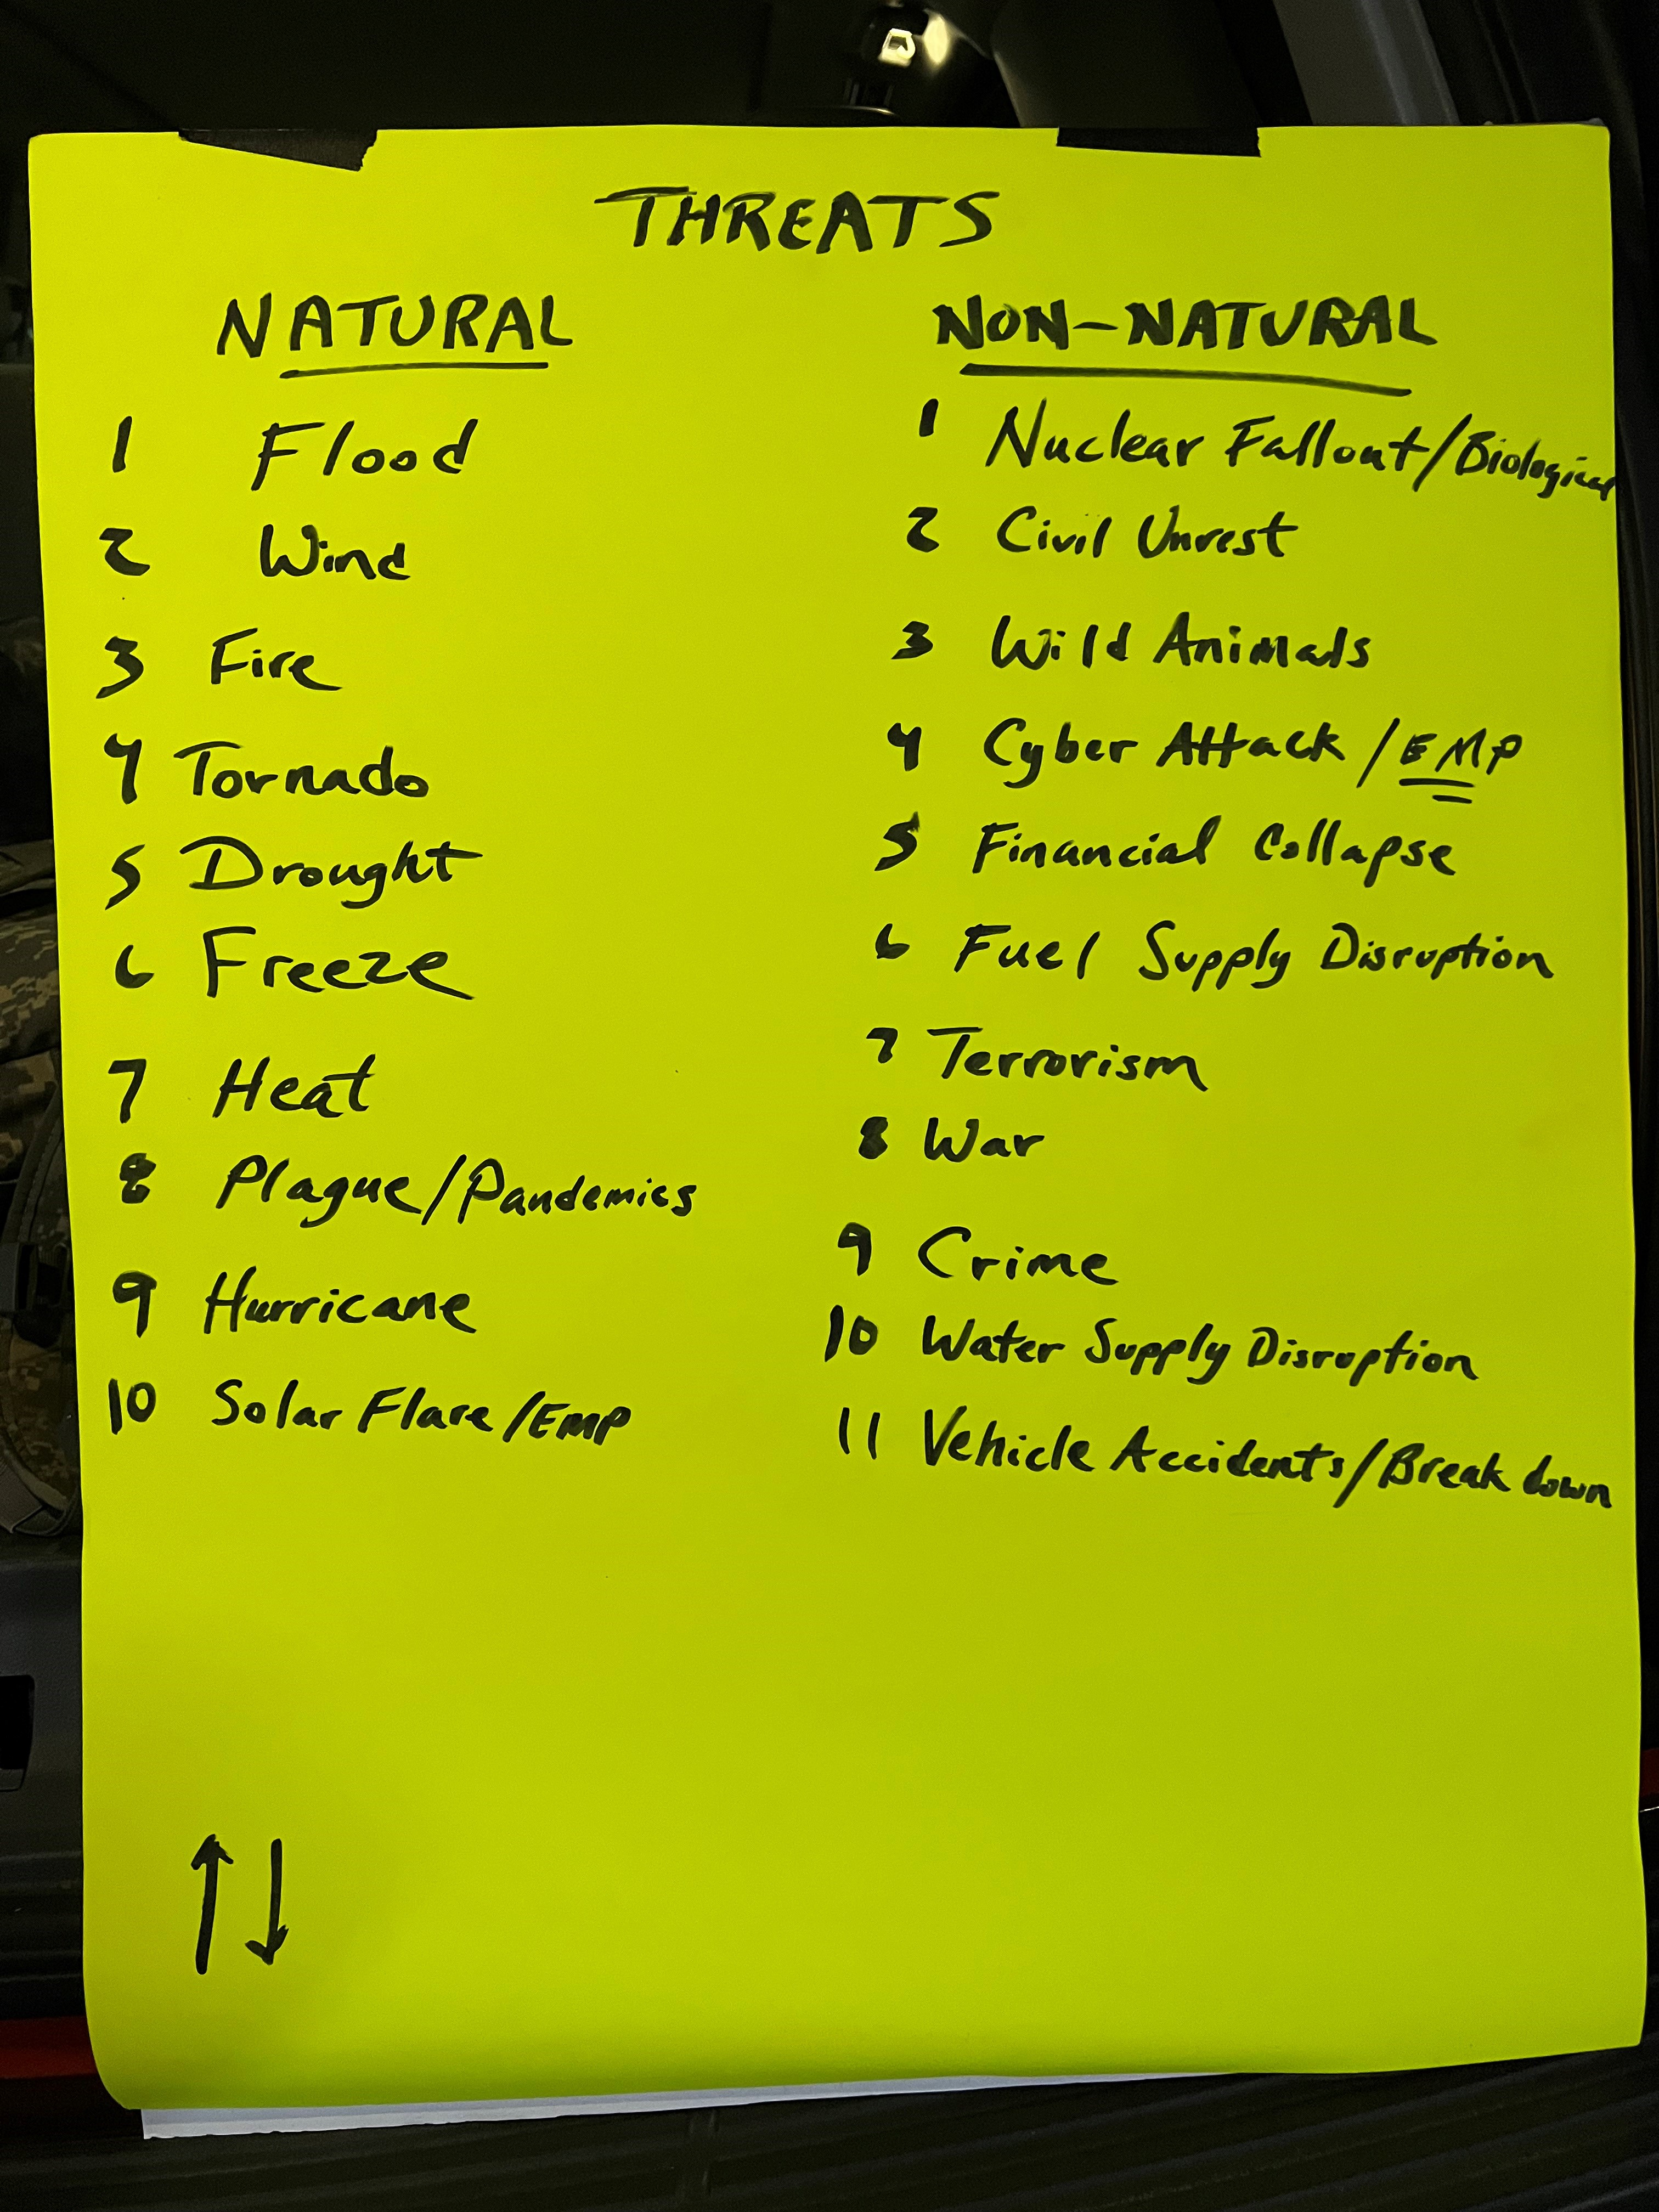 THREATS
NATURAL
1 Flood
2 Wind
3 Fire
4 Tornado
5 Drought
6 Freeze
7 Heat
8 Plague/Pandemics
9 Hurricane
10 Solar Flare/EMP
NON-NATURAL
1 Nuclear Fallout/Biological
2 Civil Unrest
3 Wild Animals
4 Cyber Attack/EMP
5 Financial Collapse
6 Fuel Supply Disruption
7 Terrorism
8 War
9 Crime
10 Water Supply Disruption
11 Vehicle Accidents/Break down